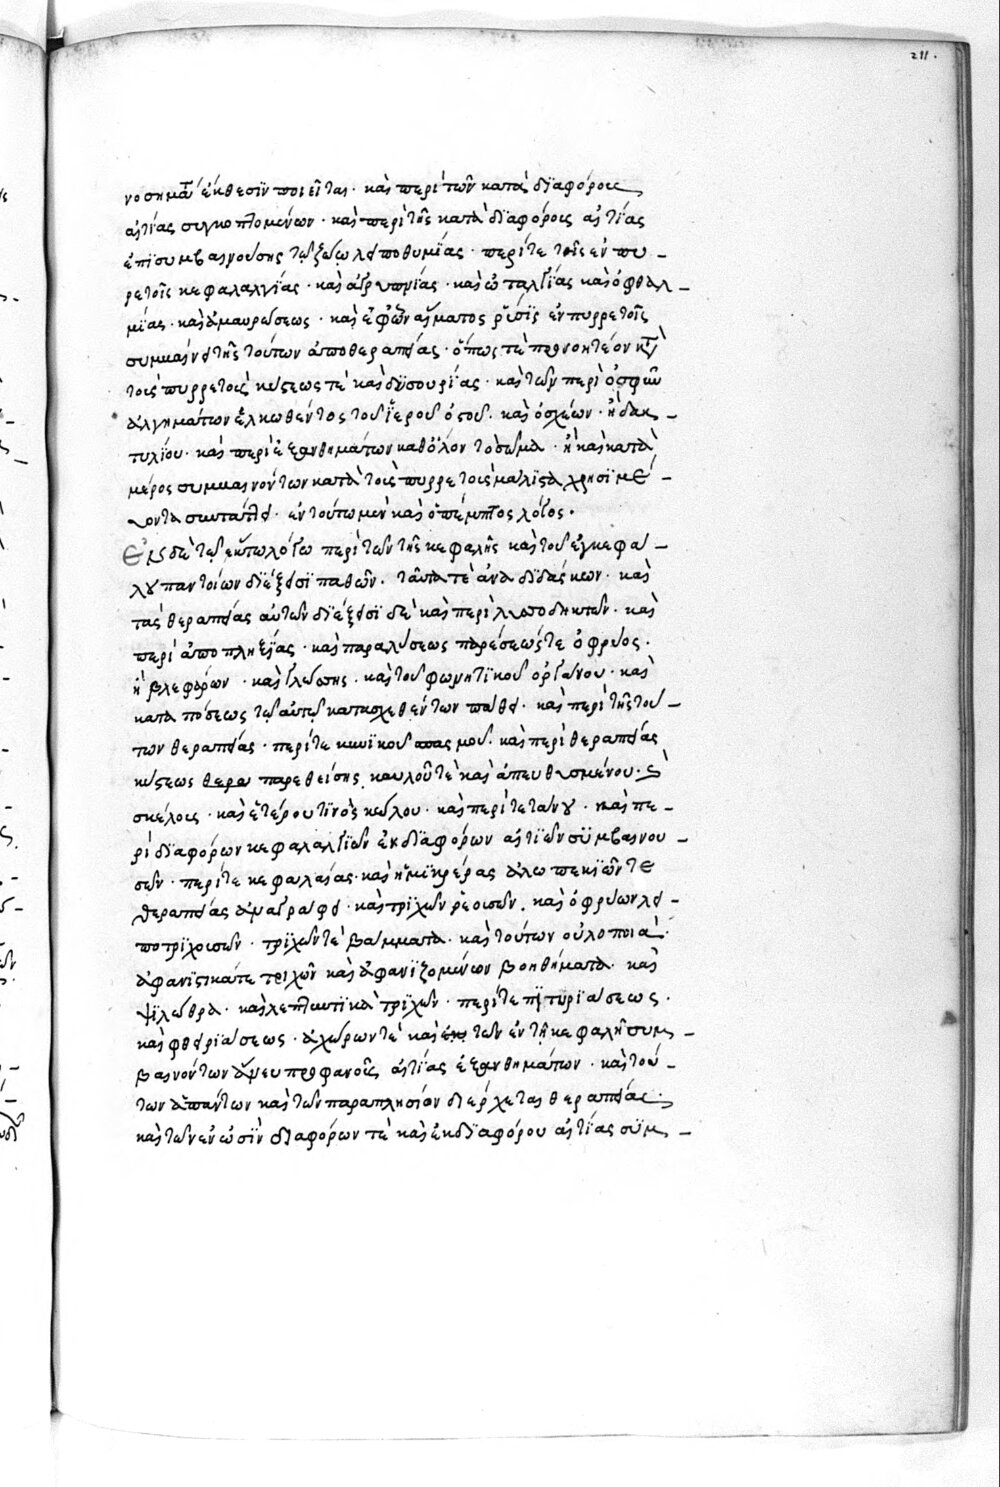 211.
νοσημάτ ἔκθεσϊν ποιεῖται· καὶ περὶ τῶν κατὰ δϊαφόροις
αἰτίας συγκοπτομένων· καὶ περὶ τῆς κατὰ δϊαφόροις αἰτίας
ἐπϊσυμβαινούσης τῷ ζώω λειποθυμΐας· περί τε τοῖς ἐν πυ –
ρετοῖς κεφαλαλγίας· καὶ ἀγρυπνίας· καὶ ὠταλγίας καὶ ὀφθαλ –
μΐας· καὶ ἀμαυρώσεως· καὶ αἵματος ῥύσϊς ἐν πυρρετοῖς
συμμαίν τῆς τούτων ἀποθεραπείας· ὅπως τὲ προνοητέον
τοῖς πυρρετοῖς κώσεως τὲ καὶ δϋσουρίας· καὶ τῶν περὶ ὀσφῦν
ἀλγημάτων ἑλκωθέντος τοῦ ἱεροῦ ὀστοῦ· καὶ ὀσχέων· ἢ δακ –
τυλίου· καὶ περὶ ἐξανθημάτων καθόλον τὸ σῶμα· ἢ καὶ κατὰ
μέρος συμμαινόντων κατὰ τοῖς πυρρετοῖς μάλϊστα χρησϊμεύ –
οντα συντάττει· ἐν τούτω μὲν καὶ ὁ πέμπτος λόγος·
Ἐν δὲ τῷ ἕκτω λόγω περὶ τῶν τῆς κεφαλῆς καὶ τοῦ ἐγκεφα –
λου παντοίων δϊέξεισϊ παθῶν· ταῦτα τὲ ἀναδϊδάσκων· καὶ
τὰς θεραπείας αὐτῶν δϊέξεισϊ δὲ καὶ περὶ λιποδηκτῶν· καὶ
περὶ ἀποπληξΐας· καὶ παραλύσεως παρέσεώς τε ὀφρύος·
ἢ βλεφάρων· καὶ γλώσσης· καὶ τοῦ φωνητϊκοῦ ὀργάνου· καὶ
καταπόσεως τῷ αὐτῷ κατασχεθέντων πάθει· καὶ περὶ τῆς τού –
των θεραπείας· περί τε κυνϊκοῦ σπασμοῦ· καὶ περὶ θεραπείας
κύστεως θερα παρεθείσης καυλοῦ τὲ καὶ ἀπευθυσμένου·
σκέλοις· καὶ ἑτέρου τϊνὸς κώλου· καὶ περὶ τετάνου· καὶ πε –
ρὶ δϊαφόρων κεφαλαλγϊῶν ἐκ δϊαφόρων αἰτϊῶν σϋμβαινου –
σῶν· περί τε κεφαλαίας· καὶ ἡμϊκρέρας ἀλωπεκϊῶν τὲ
θεραπείας ἀναγράφει· καὶ τρϊχῶν ῥεοισῶν· καὶ ὀφρύων λει –
ποτρϊχοισῶν· τρϊχῶν τὲ βάμματα· καὶ τούτων οὐλοποιὰ·
ἀφανϊστικά τε τριχῶν καὶ ἀφανϊζομένων βοηθήματα· καὶ
ψΐλωθρα· καὶ λεπτυντϊκὰ τρϊχῶν· περί τε πϊτυρϊάσεως·
καὶ φθειρϊάσεως· ἀχώρων τὲ καὶ τῶν ἐν τῇ κεφαλῇ συμ –
βαινόντων ἄνευ προφανοῖς αἰτίας ἐξανθημάτων· καὶ τού –
των ἁπάντων καὶ τῶν παραπλησίον διέρχεται θεραπείας·
καὶ τῶν ἐν ὠσϊν διαφόρων τὲ καὶ ἐκ δϊαφόρου αἰτίας σϋμ –